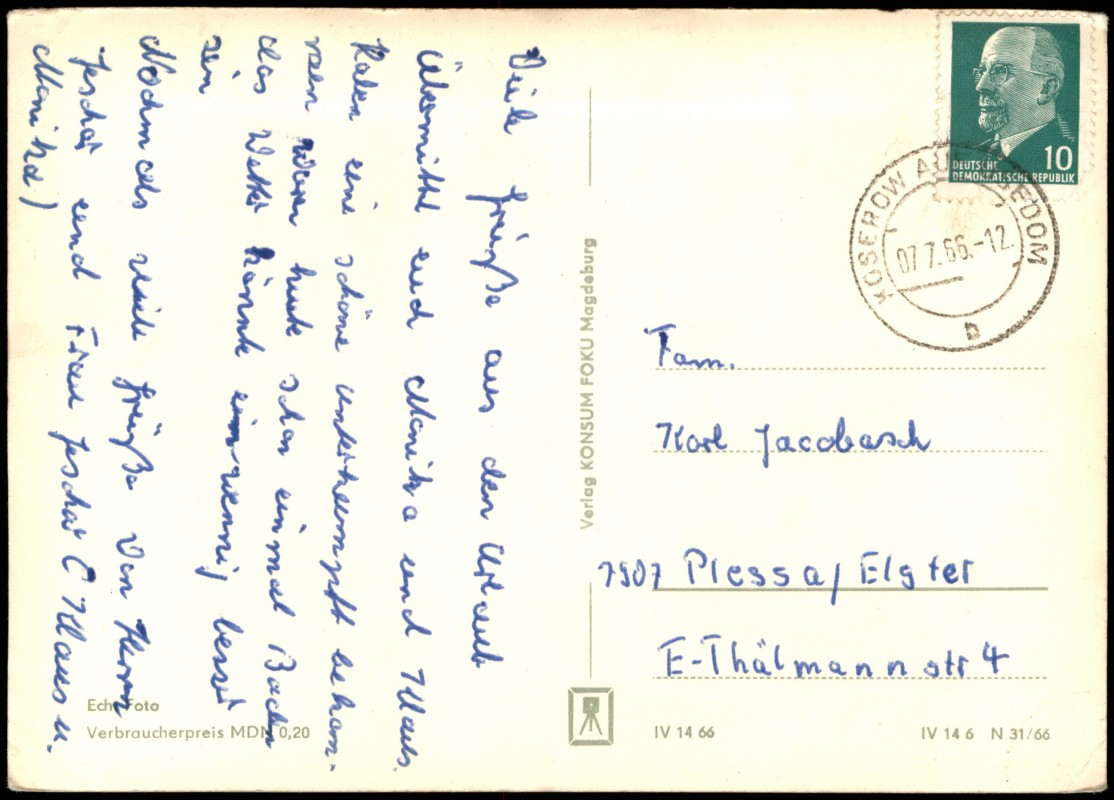 Viele Grüße aus den Urlaub
Übermittel euch Monika und Klaus.
Haben eine schöne unterkumpft bekom-
men waren heute schon einmal Baden
das Wetter könnte ein wenig besser
sein
Nochmals viele Grüße von Herrn
und Frau ( Klaus u.
Monika)
Echt Foto
Verbraucherpreis MDN 0,20
Verlag KONSUM FOKU Magdeburg
10
DEUTSCHE
DEMOKRATISCHE REPUBLIK
KOSEROW AUF USEDOM
07.7.66.-12
b
Fam.
Karl Jacobasch
7907 Plessa/Elster
E-Thälmannstr 4
IV 14 66
IV 14 6 N 31/66